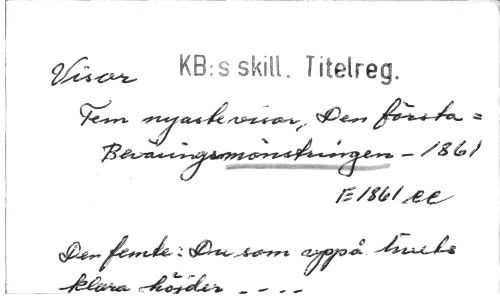 Visor KB:s skill. Titelreg.
Fem nyaste visor, Den första =
Beväringsmönstringen - 1861
E 1861 ee
Den femte: Du som uppå livets
klara höjder - - - -